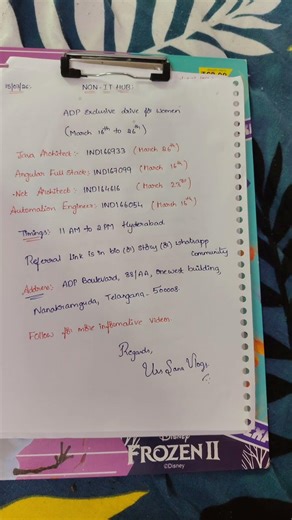 15/03/26.
NON-IT HUB:
ADP exclusive drive for women
(March 16th to 26th)
Java Architect:- IND146933 (March 26th)
Angular Full Stack:- IND147099 (March 16th)
.Net Architect:- IND164616 (March 25th)
Automation Engineer:- IND146054 (March 16th)
Timings: 11 AM to 2PM Hyderabad
Referral Link is in bio (or) story (or) whatsapp
community
Address: ADP Boulevard, 38/AA, onewest building,
Nanakramguda, Telangana - 500008.
Follow for more Informative Videos
Regards,
Urs Sana Vlogs
Disney
FROZEN II
©Disney